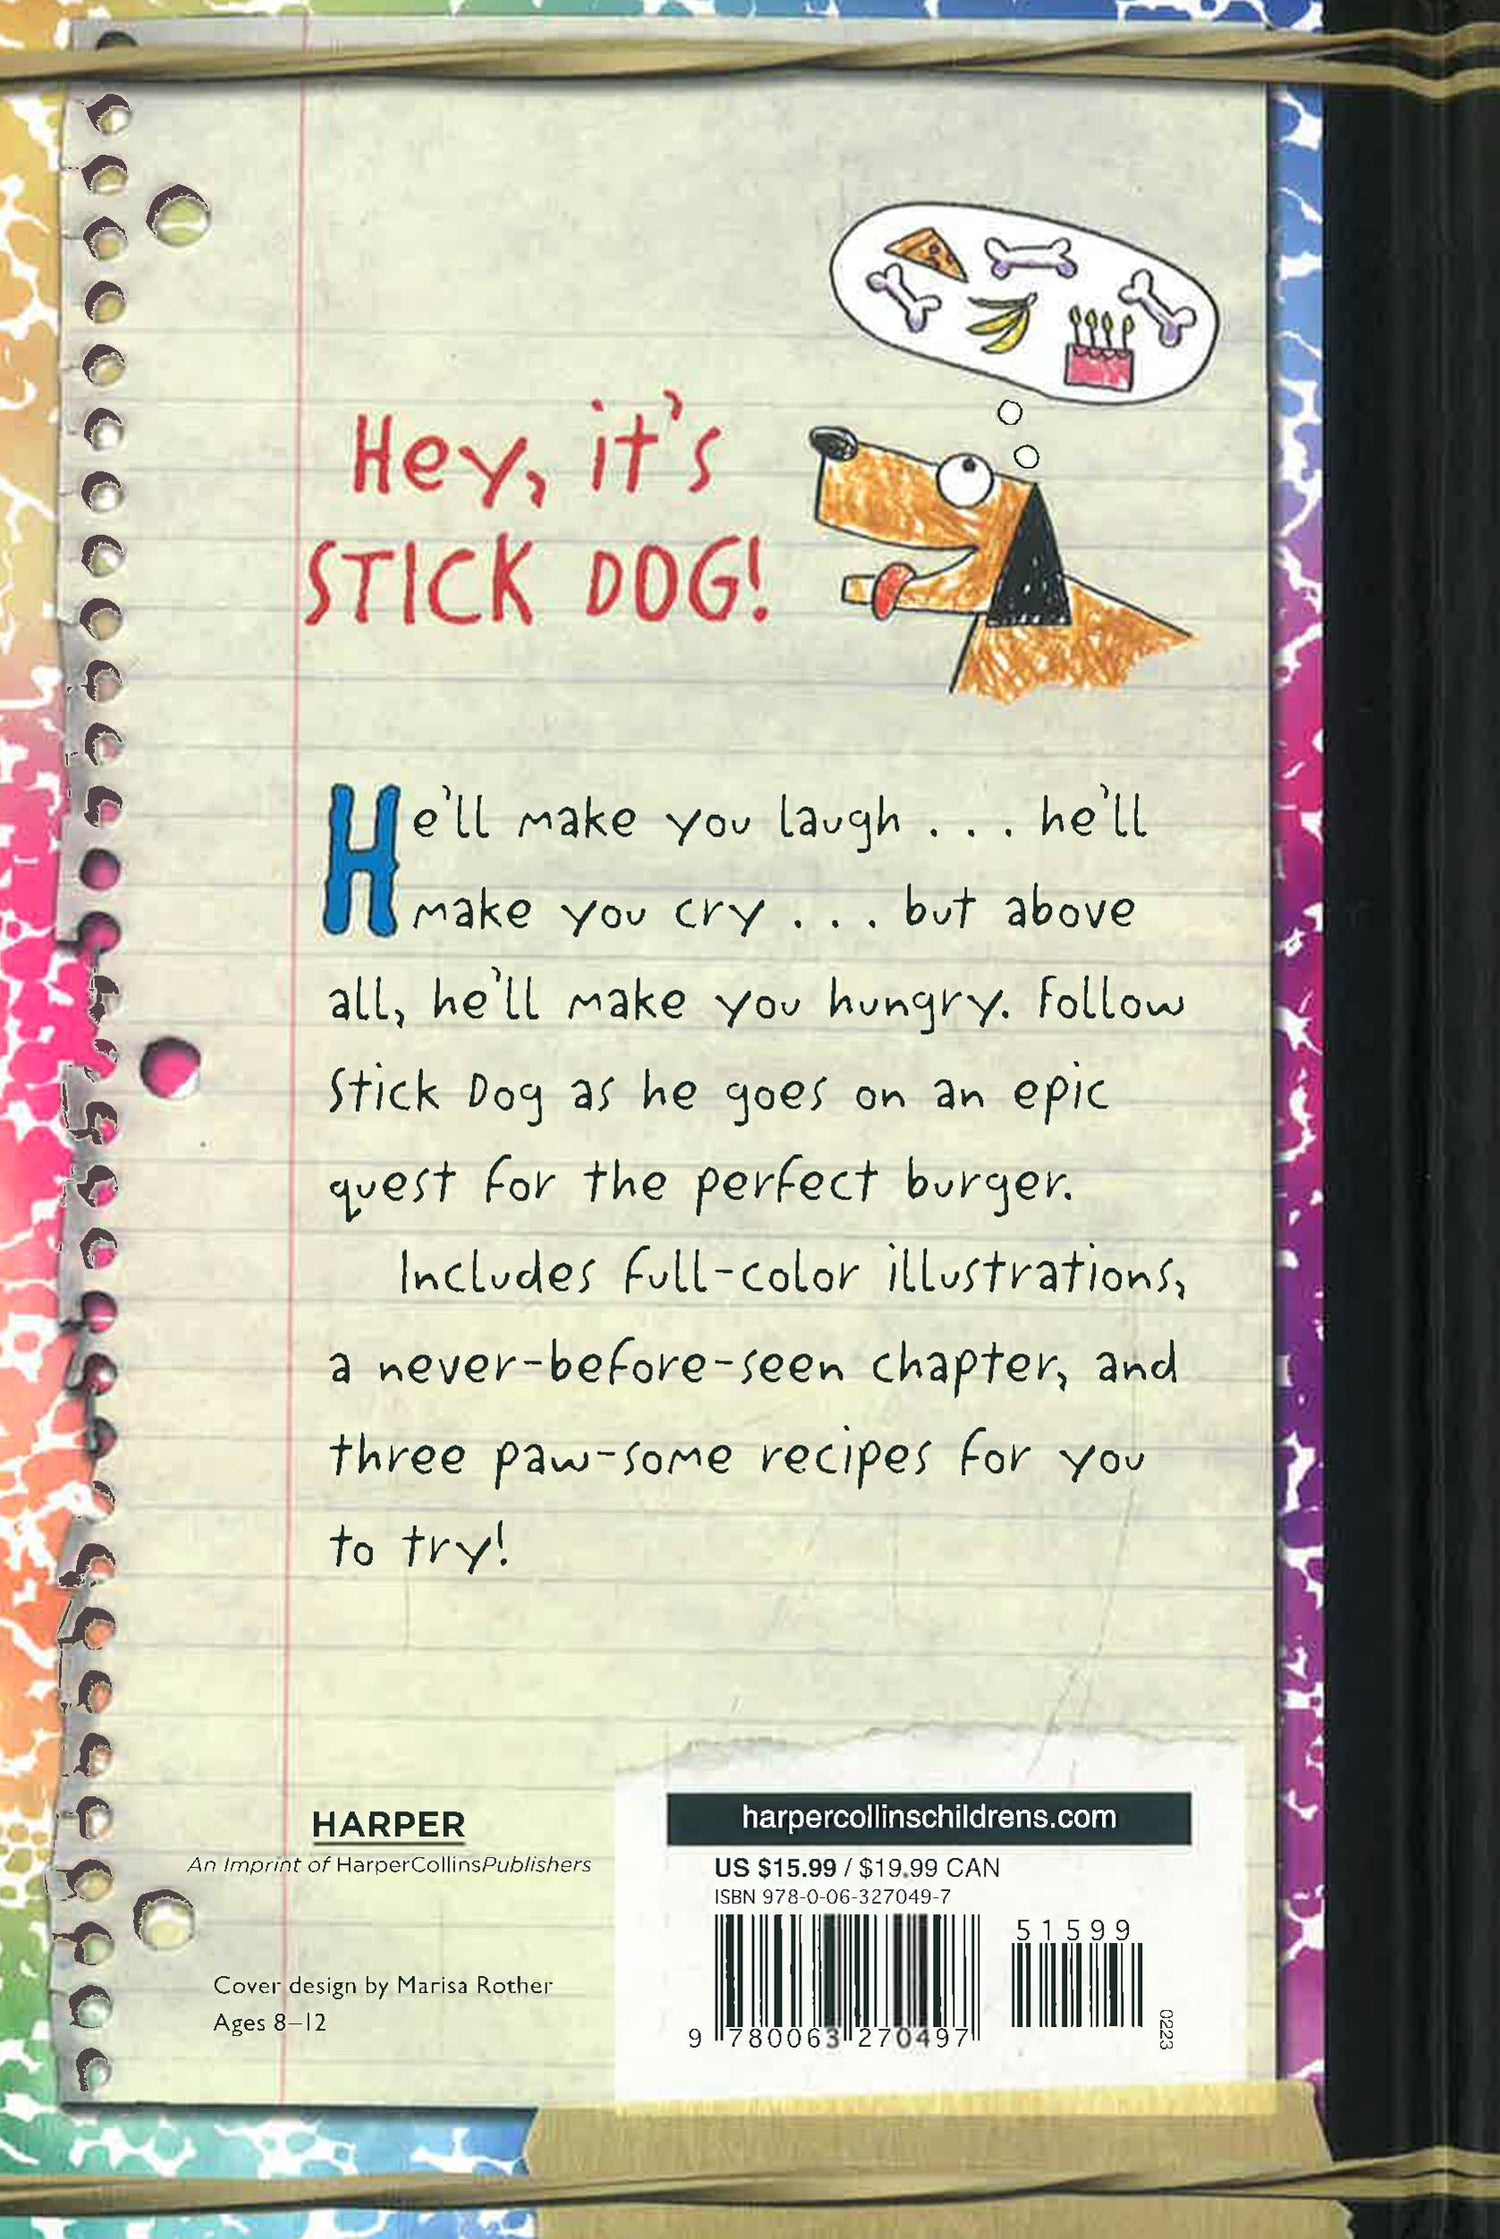 Hey, it's
STICK DOG!
He'll make you laugh . . . he'll
make you cry . . . but above
all, he'll make you hungry. Follow
Stick Dog as he goes on an epic
quest for the perfect burger.
Includes full-color illustrations,
a never-before-seen chapter, and
three paw-some recipes for you
to try!
HARPER
An Imprint of HarperCollinsPublishers
Cover design by Marisa Rother
Ages 8–12
harpercollinschildrens.com
US $15.99 / $19.99 CAN
ISBN 978-0-06-327049-7
51599
9 780063 270497
0223